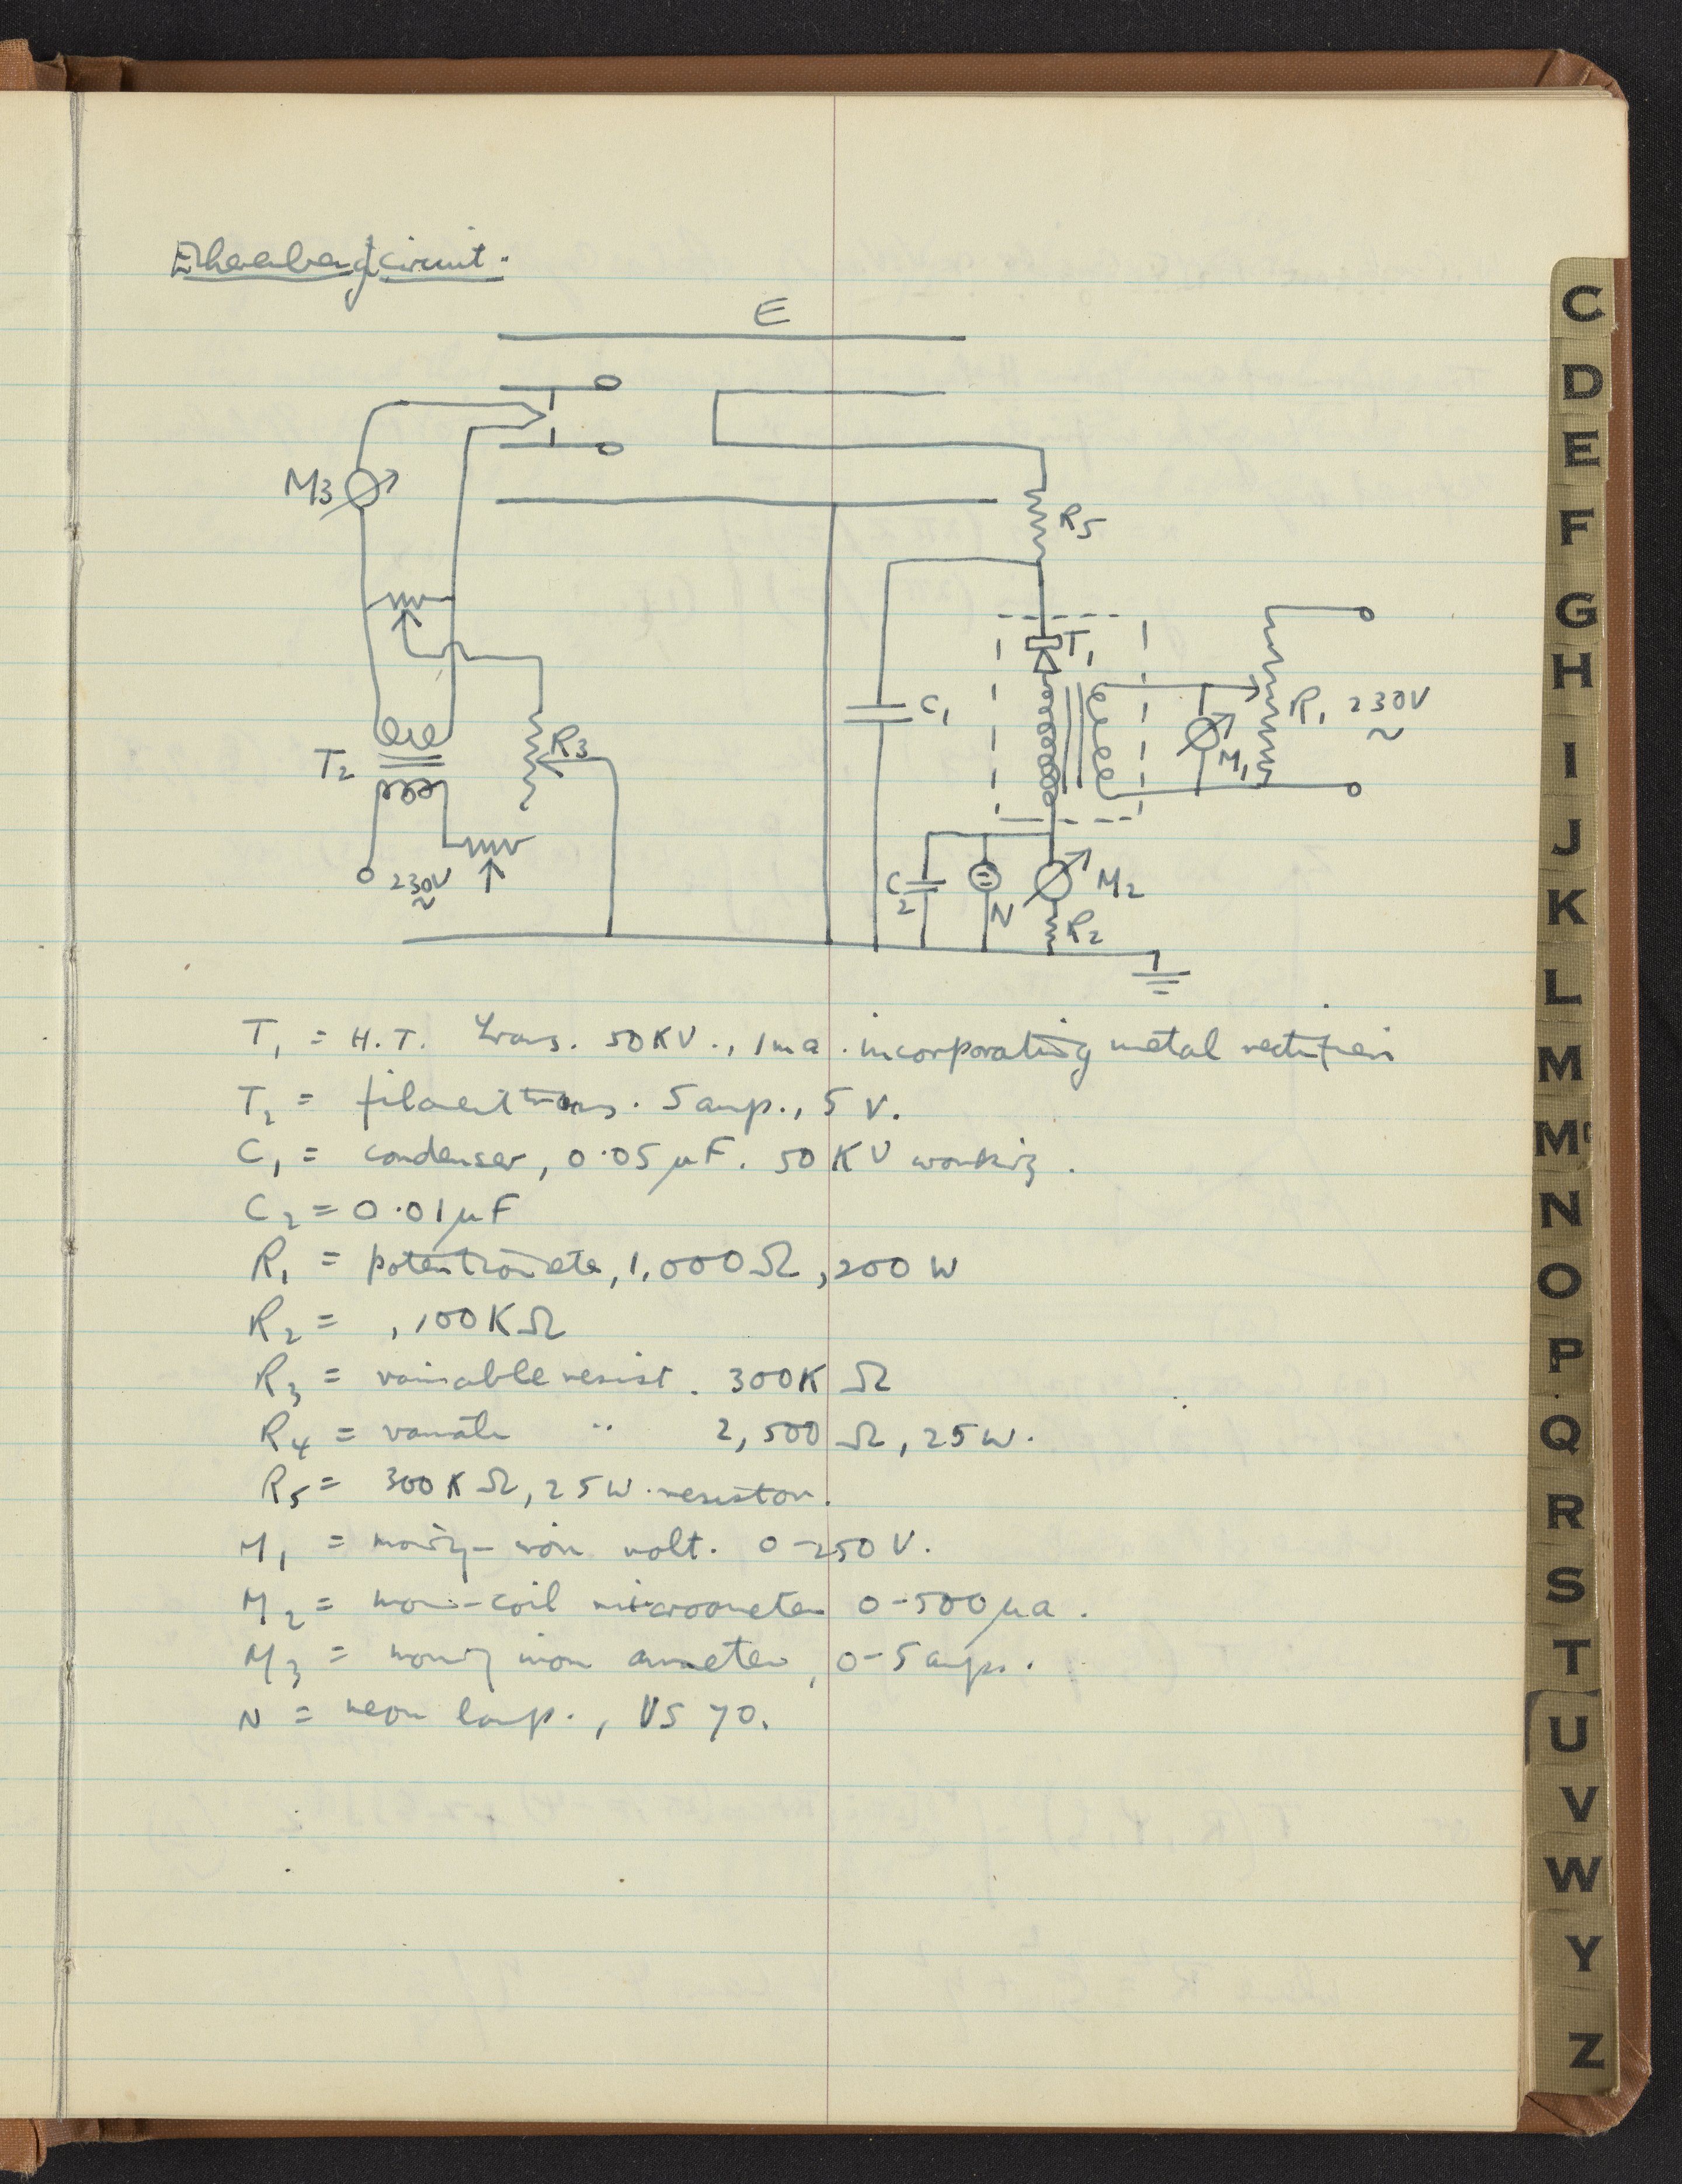 Ehrenberg circuit.
E
M3
R5
T1
C1
R1 230V
~
M1
T2
R3
230V
~
C2
N
M2
R2
T1 = H.T. Trans. 50KV., 1ma. incorporating metal rectifiers
T2 = filament trans. 5 amp., 5 V.
C1 = condenser, 0.05 µF. 50 KV working.
C2 = 0.01 µF
R1 = potentiometer, 1,000 Ω, 200 W
R2 = , 100KΩ
R3 = variable resist. 300K Ω
R4 = variable " 2,500 Ω, 25W.
R5 = 300K Ω, 25W. resistor.
M1 = moving-iron volt. 0-250V.
M2 = mov-coil microameter 0-500µa.
M3 = moving iron ammeter, 0-5 amps.
N = neon lamp., VS 70.
C
D
E
F
G
H
I
J
K
L
M
Mc
N
O
P
Q
R
S
T
U
V
W
Y
Z